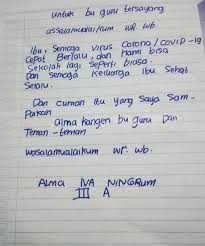 Untuk bu guru tersayang
assalamualaikum wr. wb.
Ibu, Semoga virus Corona/COVID-19
Cepat Berlalu, dan kami bisa
Sekolah lagi Seperti biasa.
Dan Semoga Keluarga Ibu Sehat
Selalu.
Dan cuman itu yang saya Sam-
Paikan
alma kangen bu guru Dan
Teman-teman
wassalamualaikum wr. wb.
Alma IVA NINGRUM
III A